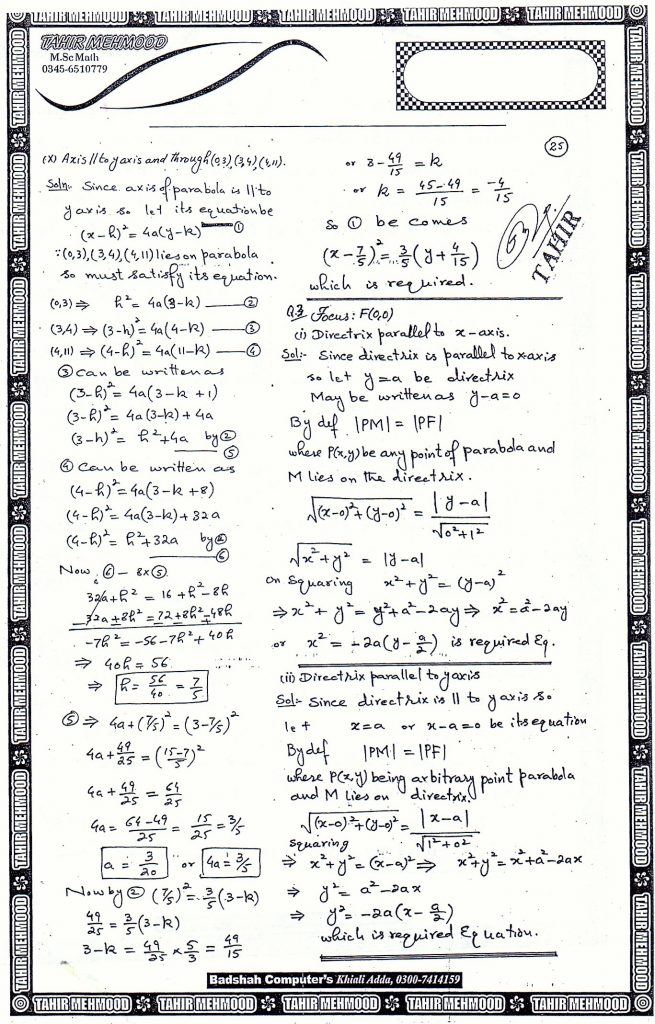 TAHIR MEHMOOD TAHIR MEHMOOD TAHIR MEHMOOD TAHIR MEHMOOD TAHIR MEHMOOD
TAHIR MEHMOOD
M.Sc Math
0345-6510779
(x) Axis || to y axis and through (0,3), (3,4), (4,11).
Soln:- Since axis of parabola is || to
y axis so let its equation be
(x-h)² = 4a(y-k) —— ①
∵ (0,3), (3,4), (4,11) lies on parabola
so must satisfy its equation.
(0,3) ⇒ h² = 4a(3-k) —— ②
(3,4) ⇒ (3-h)² = 4a(4-k) —— ③
(4,11) ⇒ (4-h)² = 4a(11-k) —— ④
③ can be written as
(3-h)² = 4a(3-k+1)
(3-h)² = 4a(3-k)+4a
(3-h)² = h²+4a by ②
—— ⑤
④ can be written as
(4-h)² = 4a(3-k+8)
(4-h)² = 4a(3-k)+32a
(4-h)² = h²+32a by ②
—— ⑥
Now, ⑥ - 8x⑤
32a+h² = 16+h²-8h
-32a±8h² = -72±8h²∓48h
-7h² = -56-7h²+40h
⇒ 40h = 56
⇒ h = 56/40 = 7/5
⑤ ⇒ 4a+(7/5)² = (3-7/5)²
4a+49/25 = ((15-7)/5)²
4a+49/25 = 64/25
4a = (64-49)/25 = 15/25 = 3/5
a = 3/20 or 4a = 3/5
Now by ② (7/5)² = 3/5(3-k)
49/25 = 3/5(3-k)
3-k = 49/25 × 5/3 = 49/15
25
or 3-49/15 = k
or k = (45-49)/15 = -4/15
so ① be comes
(x-7/5)² = 3/5(y+4/15)
which is required.
TAHIR
Q.3 Focus: F(0,0)
(i) Directrix parallel to x-axis.
Sol:- Since directrix is parallel to x-axis
so let y=a be directrix
May be written as y-a=0
By def |PM| = |PF|
where P(x,y) be any point of parabola and
M lies on the directrix.
√((x-0)²+(y-0)²) = |y-a|/√(0²+1²)
√(x²+y²) = |y-a|
On Squaring x²+y² = (y-a)²
⇒ x²+y² = y²+a²-2ay ⇒ x² = a²-2ay
or x² = -2a(y-a/2) is required Eq.
(ii) Directrix parallel to y axis
Sol:- Since directrix is || to y axis so
let x=a or x-a=0 be its equation
By def |PM| = |PF|
where P(x,y) being arbitrary point parabola
and M lies on directrix.
√((x-0)²+(y-0)²) = |x-a|/√(1²+0²)
Squaring
⇒ x²+y² = (x-a)² ⇒ x²+y² = x²+a²-2ax
⇒ y² = a²-2ax
⇒ y² = -2a(x-a/2)
which is required Equation.
Badshah Computer's Khiali Adda, 0300-7414159
TAHIR MEHMOOD TAHIR MEHMOOD TAHIR MEHMOOD TAHIR MEHMOOD TAHIR MEHMOOD